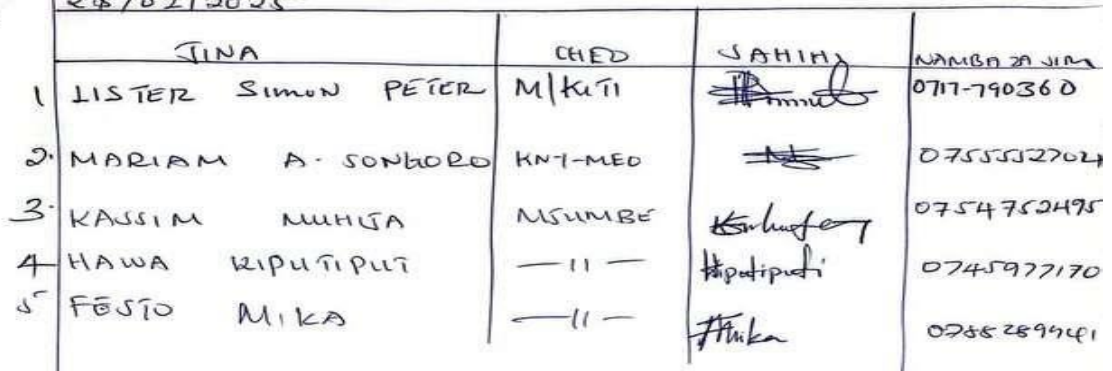 28/02/2025
JINA CHEO SAHIHI NAMBA ZA SIM
1 LISTER SIMON PETER M/KITI 0717-790360
2. MARIAM A. SONGORO KNY-MEO 0755552702
3. KASSIM MUHIJA MJUMBE
0754752495
4 HAWA KIPUTIPUT —11— Kiputiputi 0745977170
5 FESTO MIKA —11— FMika